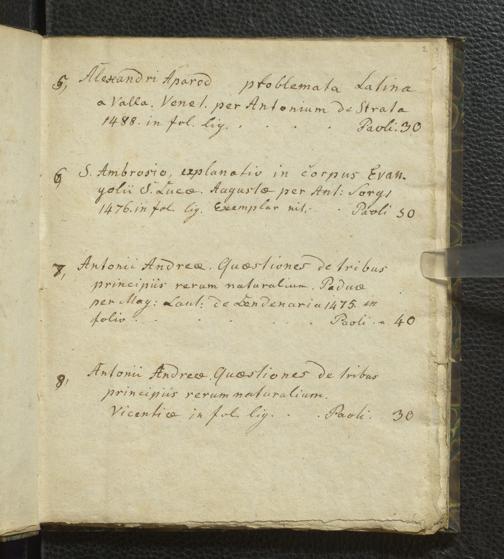 2
5, Alexandri Aparod problemata Latina
a Valla. Venet. per Antonium de Strata
1488. in fol. lig. . . . . Paoli. 30
6, S. Ambrosio, explanatio in corpus Evan-
gelii S. Lucæ. Augustæ per Ant: Sorgs
1476. in fol. lig. Exemplar nit. . . Paoli 50
7, Antonii Andreæ. Quæstiones de tribus
principiis rerum naturalium. Paduæ
per Mag: Laut: de Lendenaria 1475. in
folio . . . . . Paoli . 40
8, Antonii Andreæ. Quæstiones de tribus
principiis rerum naturalium.
Vicentiæ in fol. lig. . . Paoli. 30